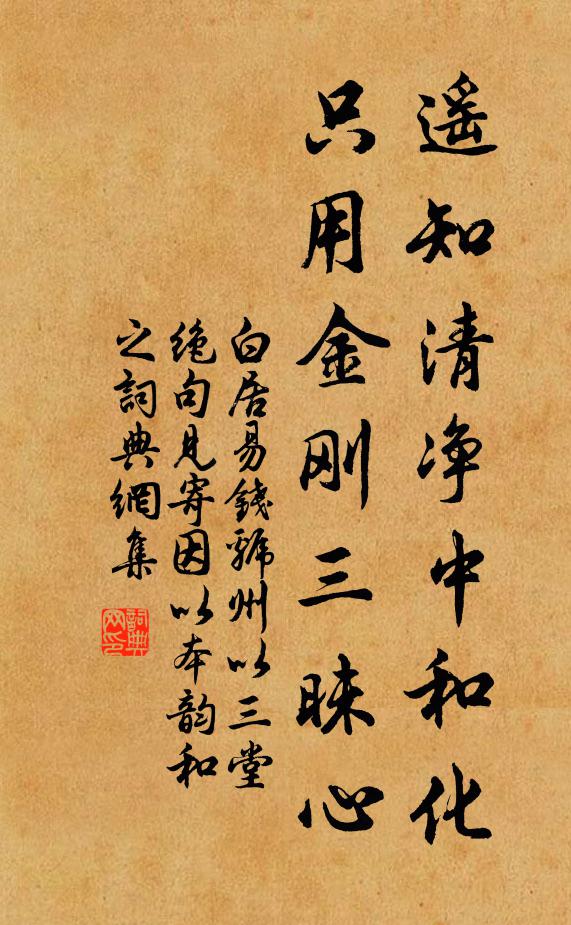 遥知清净中和化
只用金刚三昧心
白居易錢虢州以三堂
绝句見寄因以本韵和
之詞典網集
詞典
网印